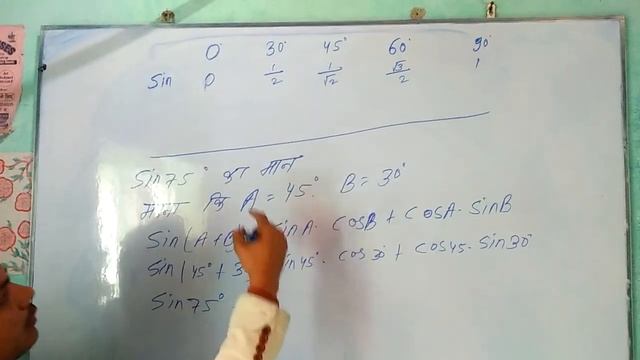 0 30° 45° 60° 90°
Sin 0 1/2 1/√2 √3/2 1
Sin75° का मान
माना कि A = 45° B = 30°
Sin(A+B) SinA· COSB + COSA· SinB
Sin(45°+3 Sin45°· COS30° + COS45· Sin30°
Sin75°